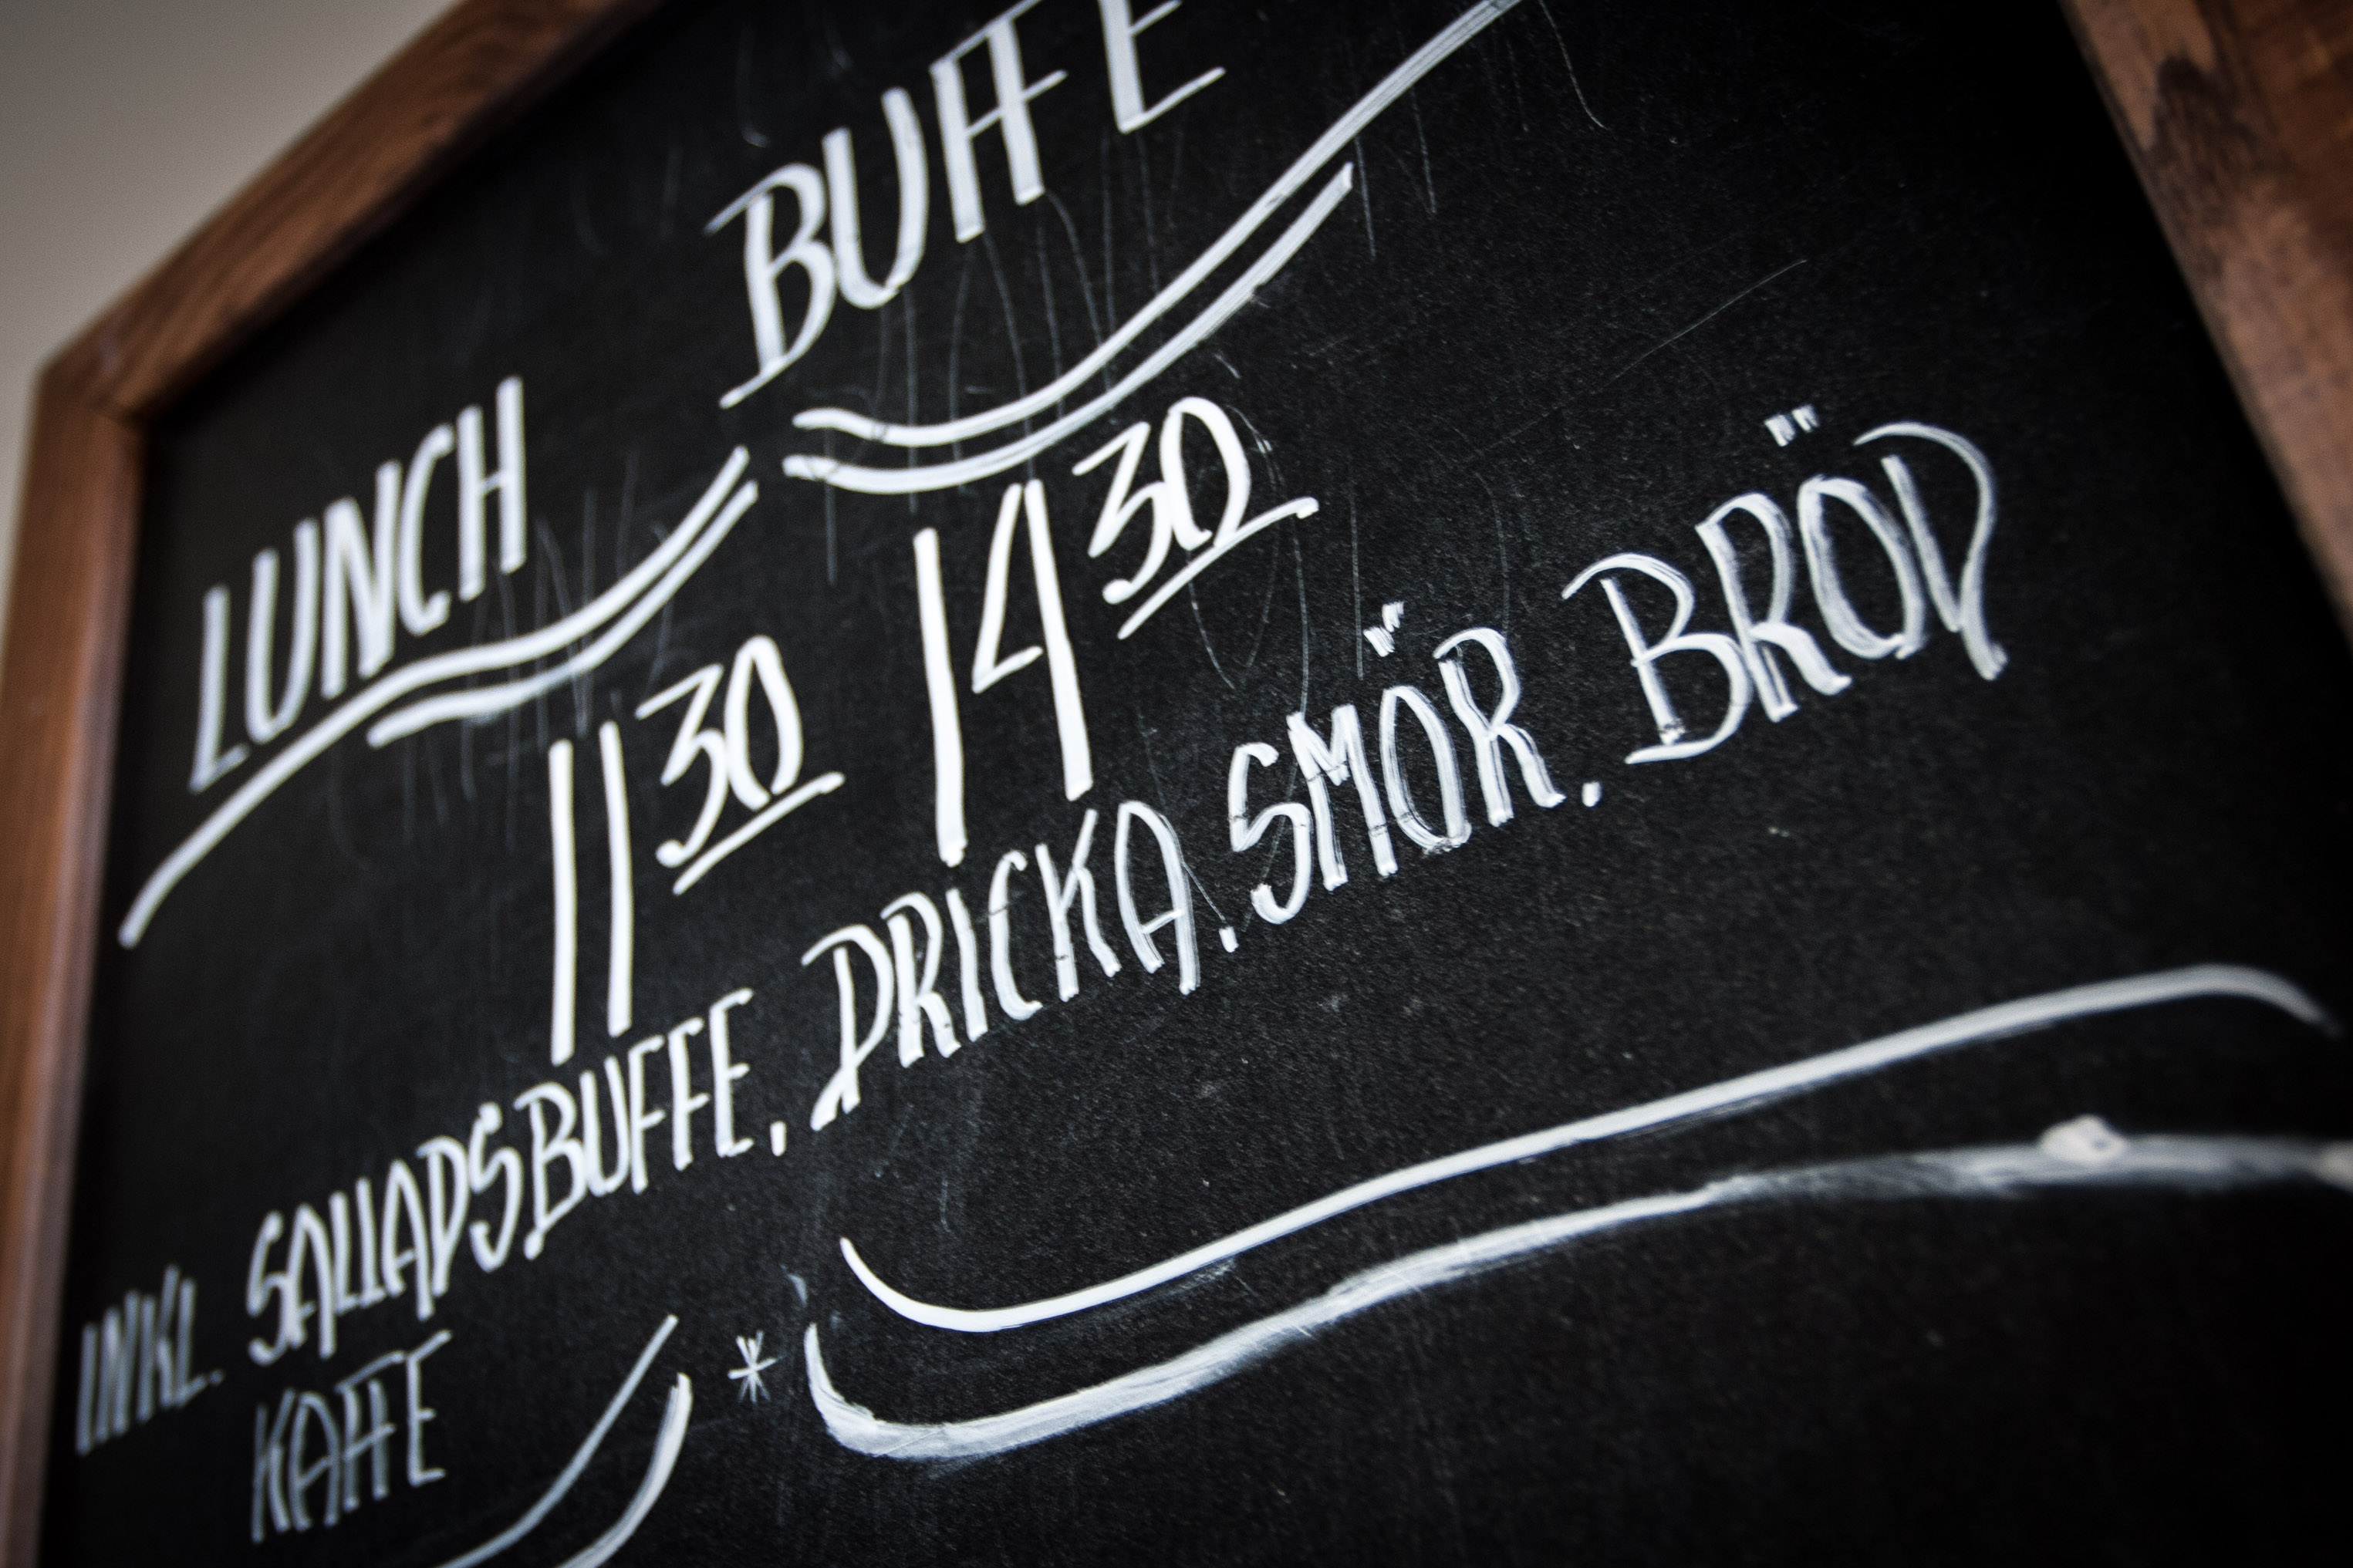 LUNCH BUFFE
11 30 14 30
INKL. SALLADSBUFFE, DRICKA. SMÖR. BRÖD
KAFFE
*